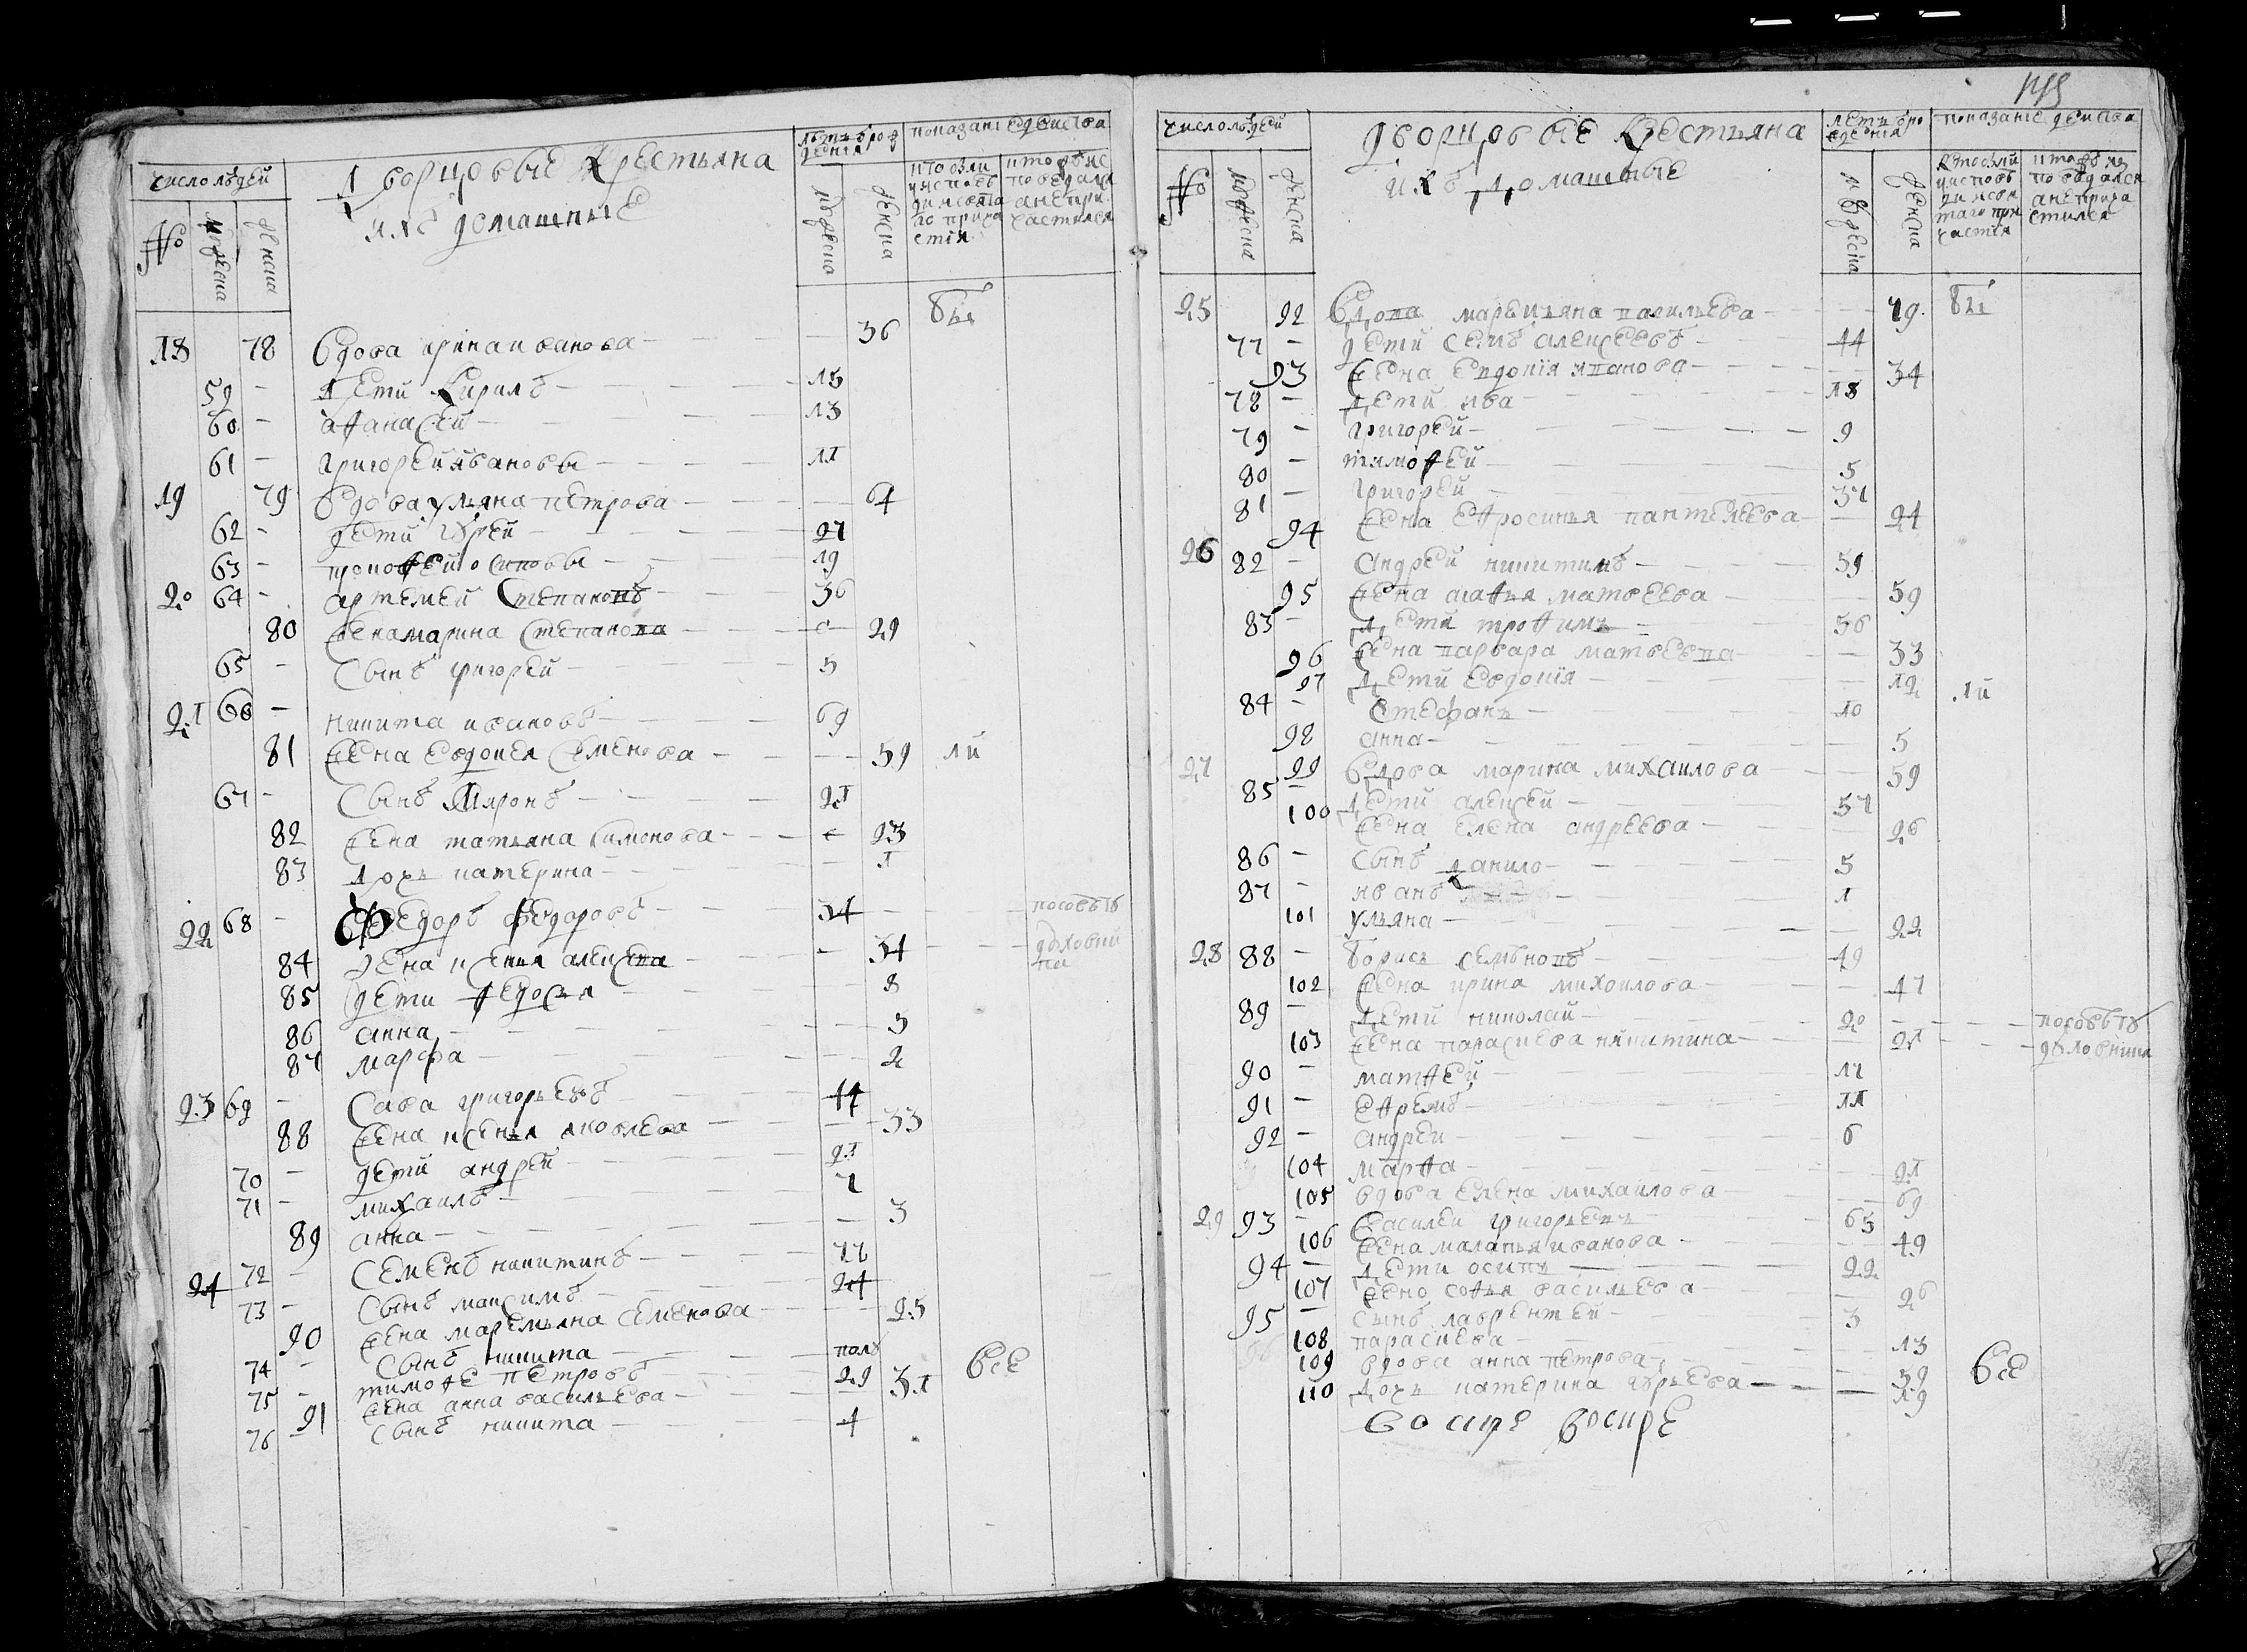 число людей
Дворцовые Крестьяна
и ихъ домашные
летъ от рождения
показание действа
№
мужеска
женска
мужеска
женска
кто были у исповеди и святаго причастия
кто исповедался а не причастился
18 78 вдова иринаиванова 36 бы
59 - дети Кирилъ 15
60 - афанасей 13
61 - григорейивановы 11
19 79 вдова ульяна петрова 64
62 - дети юрей 27
63 - прокофей осиповы 19
20 64 - артемей Степановъ 36
80 женамарина Степанова 29
65 - сынъ григорей 5
21 66 - никита ивановъ 69
81 жена евдокея Семенова 59 ли
67 - сынъ Миронъ 21
82 жена татьяна Симонова 23
83 дочь катерина 1
22 68 - Федоръ федоровъ 34
84 жена ксенья алексева 34
85 дети федосья 8
86 анна 5
87 марфа 2
23 69 - Сава григорьевъ 44
88 жена ксенья яковлева 33
70 - дети андрей 21
71 - михаилъ 7
89 анна 3
24 72 - Семенъ никитинъ 77
73 - сынъ максимъ 24
90 жена маремьяна семенова 25
74 - сынъ никита полу
75 - тимофе петровъ 29 все
91 жена анна васильева 31
76 - сынъ никита 4
число людей
дворцовые крестьяна
ихъ домашные
летъ от рождения
показание действа
№
мужеска
женска
мужеска
женска
25 92 вдова маремьяна васильева 79 бы
77 - дети семъ алексеевъ 44
93 жена евдокия иванова 34
78 - дети ива 18
79 - григорей 9
80 - тимофей 5
81 - григорей 37
94 жена ефросинья пантелеева 24
26 82 - андрей никитинъ 59
95 жена агафья матвеева 59
83 - дети трофимъ 36
96 жена варвара матвеева 33
97 дети евдокия 12 ли
84 - стефанъ 10
98 анна 5
27 99 вдова марина михаилова 59
85 - дети алексей 37
100 жена елена андреева 26
86 - сынъ данило 5
87 - иванъ 1
101 ульяна 22
28 88 - борисъ семеновъ 49
102 жена ирина михоилова 47
89 - дети николай 20
103 жена параскева никитина 21
90 - матфей 17
91 - ефремъ 11
92 - андреи 6
104 марфа 21
105 вдова елена михаилова 69
29 93 - василеи григорьевъ 65
106 жена маланья иванова 49
94 - дети осипъ 22
107 жено софья васильева 26
95 - сынъ лаврентей 3
108 параскева 13
109 вдова анна петрова 59 все
110 дочь катерина юрьева 19